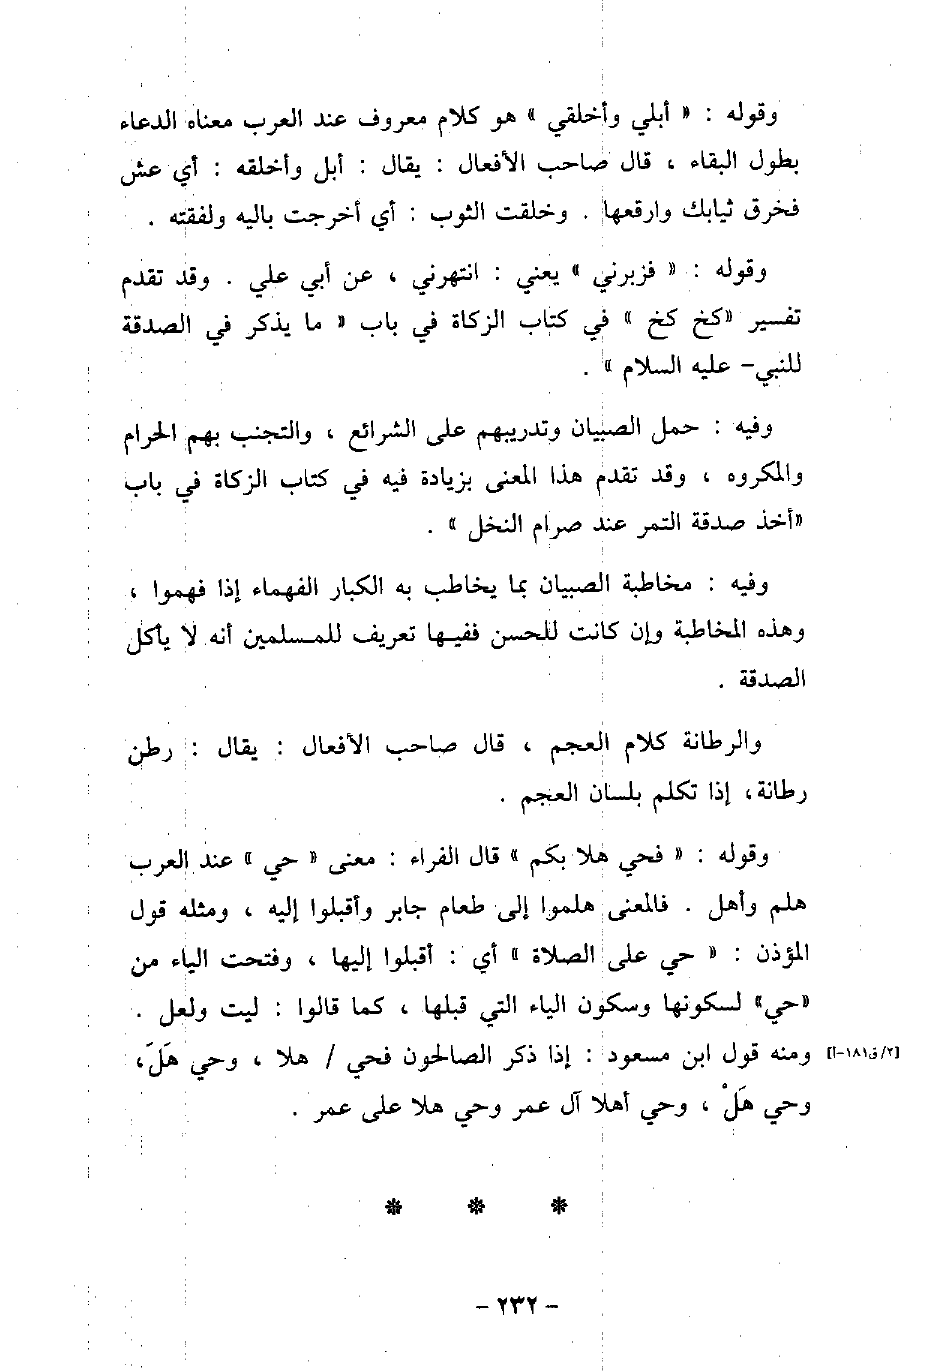 وقوله : « أبلي وأخلقي » هو كلام معروف عند العرب معناه الدعاء
بطول البقاء ، قال صاحب الأفعال : يقال : أبل وأخلقه : أي عش
فخرق ثيابك وارقعها . وخلقت الثوب : أي أخرجت باليه ولفقته .
وقوله : « فزبرني » يعني : انتهرني ، عن أبي علي . وقد تقدم
تفسير «كخ كخ » في كتاب الزكاة في باب « ما يذكر في الصدقة
للنبي– عليه السلام » .
وفيه : حمل الصبيان وتدريبهم على الشرائع ، والتجنب بهم الحرام
والمكروه ، وقد تقدم هذا المعنى بزيادة فيه في كتاب الزكاة في باب
«أخذ صدقة التمر عند صرام النخل » .
وفيه : مخاطبة الصبيان بما يخاطب به الكبار الفهماء إذا فهموا ،
وهذه المخاطبة وإن كانت للحسن ففيها تعريف للمسلمين أنه لا يأكل
الصدقة .
والرطانة كلام العجم ، قال صاحب الأفعال : يقال : رطن
رطانة، إذا تكلم بلسان العجم .
وقوله : « فحي هلا بكم » قال الفراء : معنى « حي » عند العرب
هلم وأهل . فالمعنى هلموا إلى طعام جابر وأقبلوا إليه ، ومثله قول
المؤذن : « حي على الصلاة » أي : أقبلوا إليها ، وفتحت الياء من
«حي» لسكونها وسكون الياء التي قبلها ، كما قالوا : ليت ولعل .
ومنه قول ابن مسعود : إذا ذكر الصالحون فحي / هلا ، وحي هَلَ، [٢/ق١٨١-أ]
وحي هَلْ ، وحي أهلا آل عمر وحي هلا على عمر .
* * *
– ٢٣٢ –